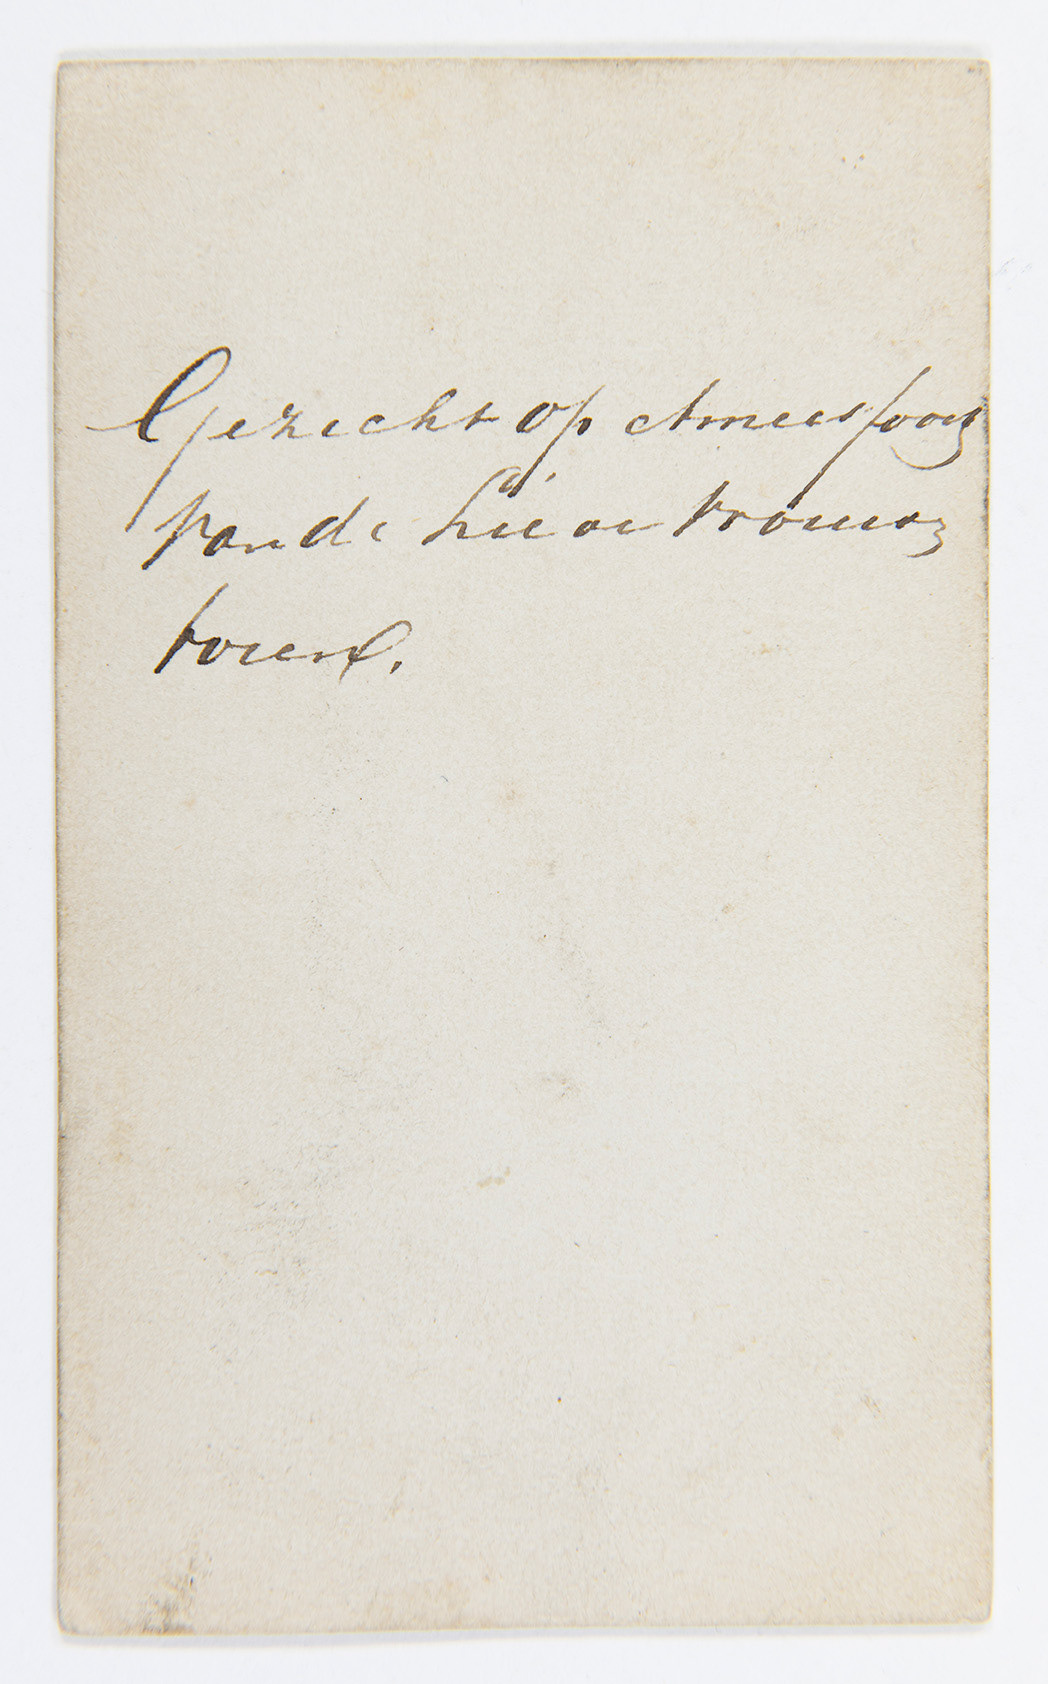 Gezicht op Amersfoort
van de Lieve vrouwe
toren.